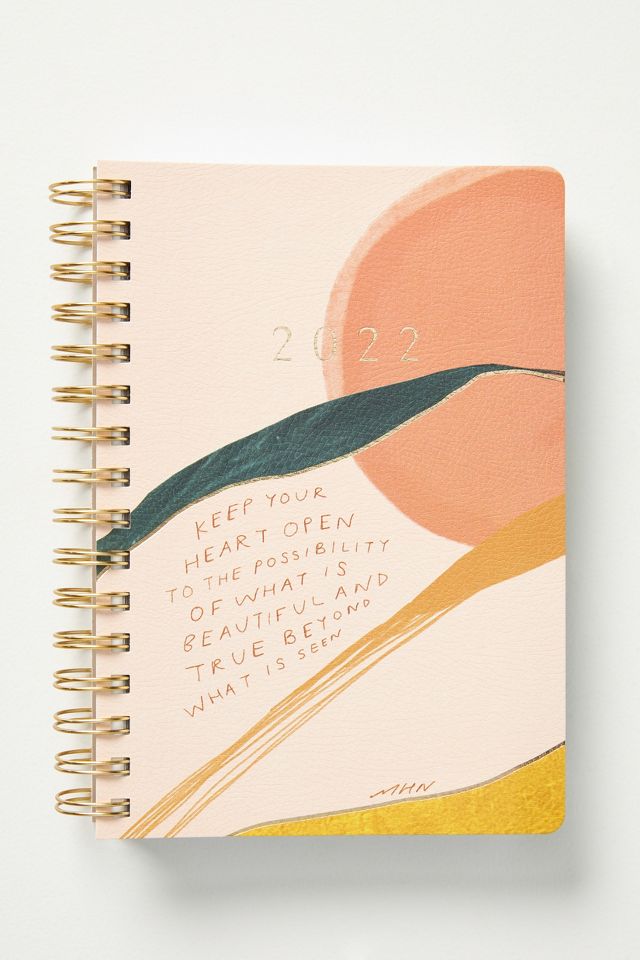 2022
KEEP YOUR
HEART OPEN
TO THE POSSIBILITY
OF WHAT IS
BEAUTIFUL AND
TRUE BEYOND
WHAT IS SEEN
MHN